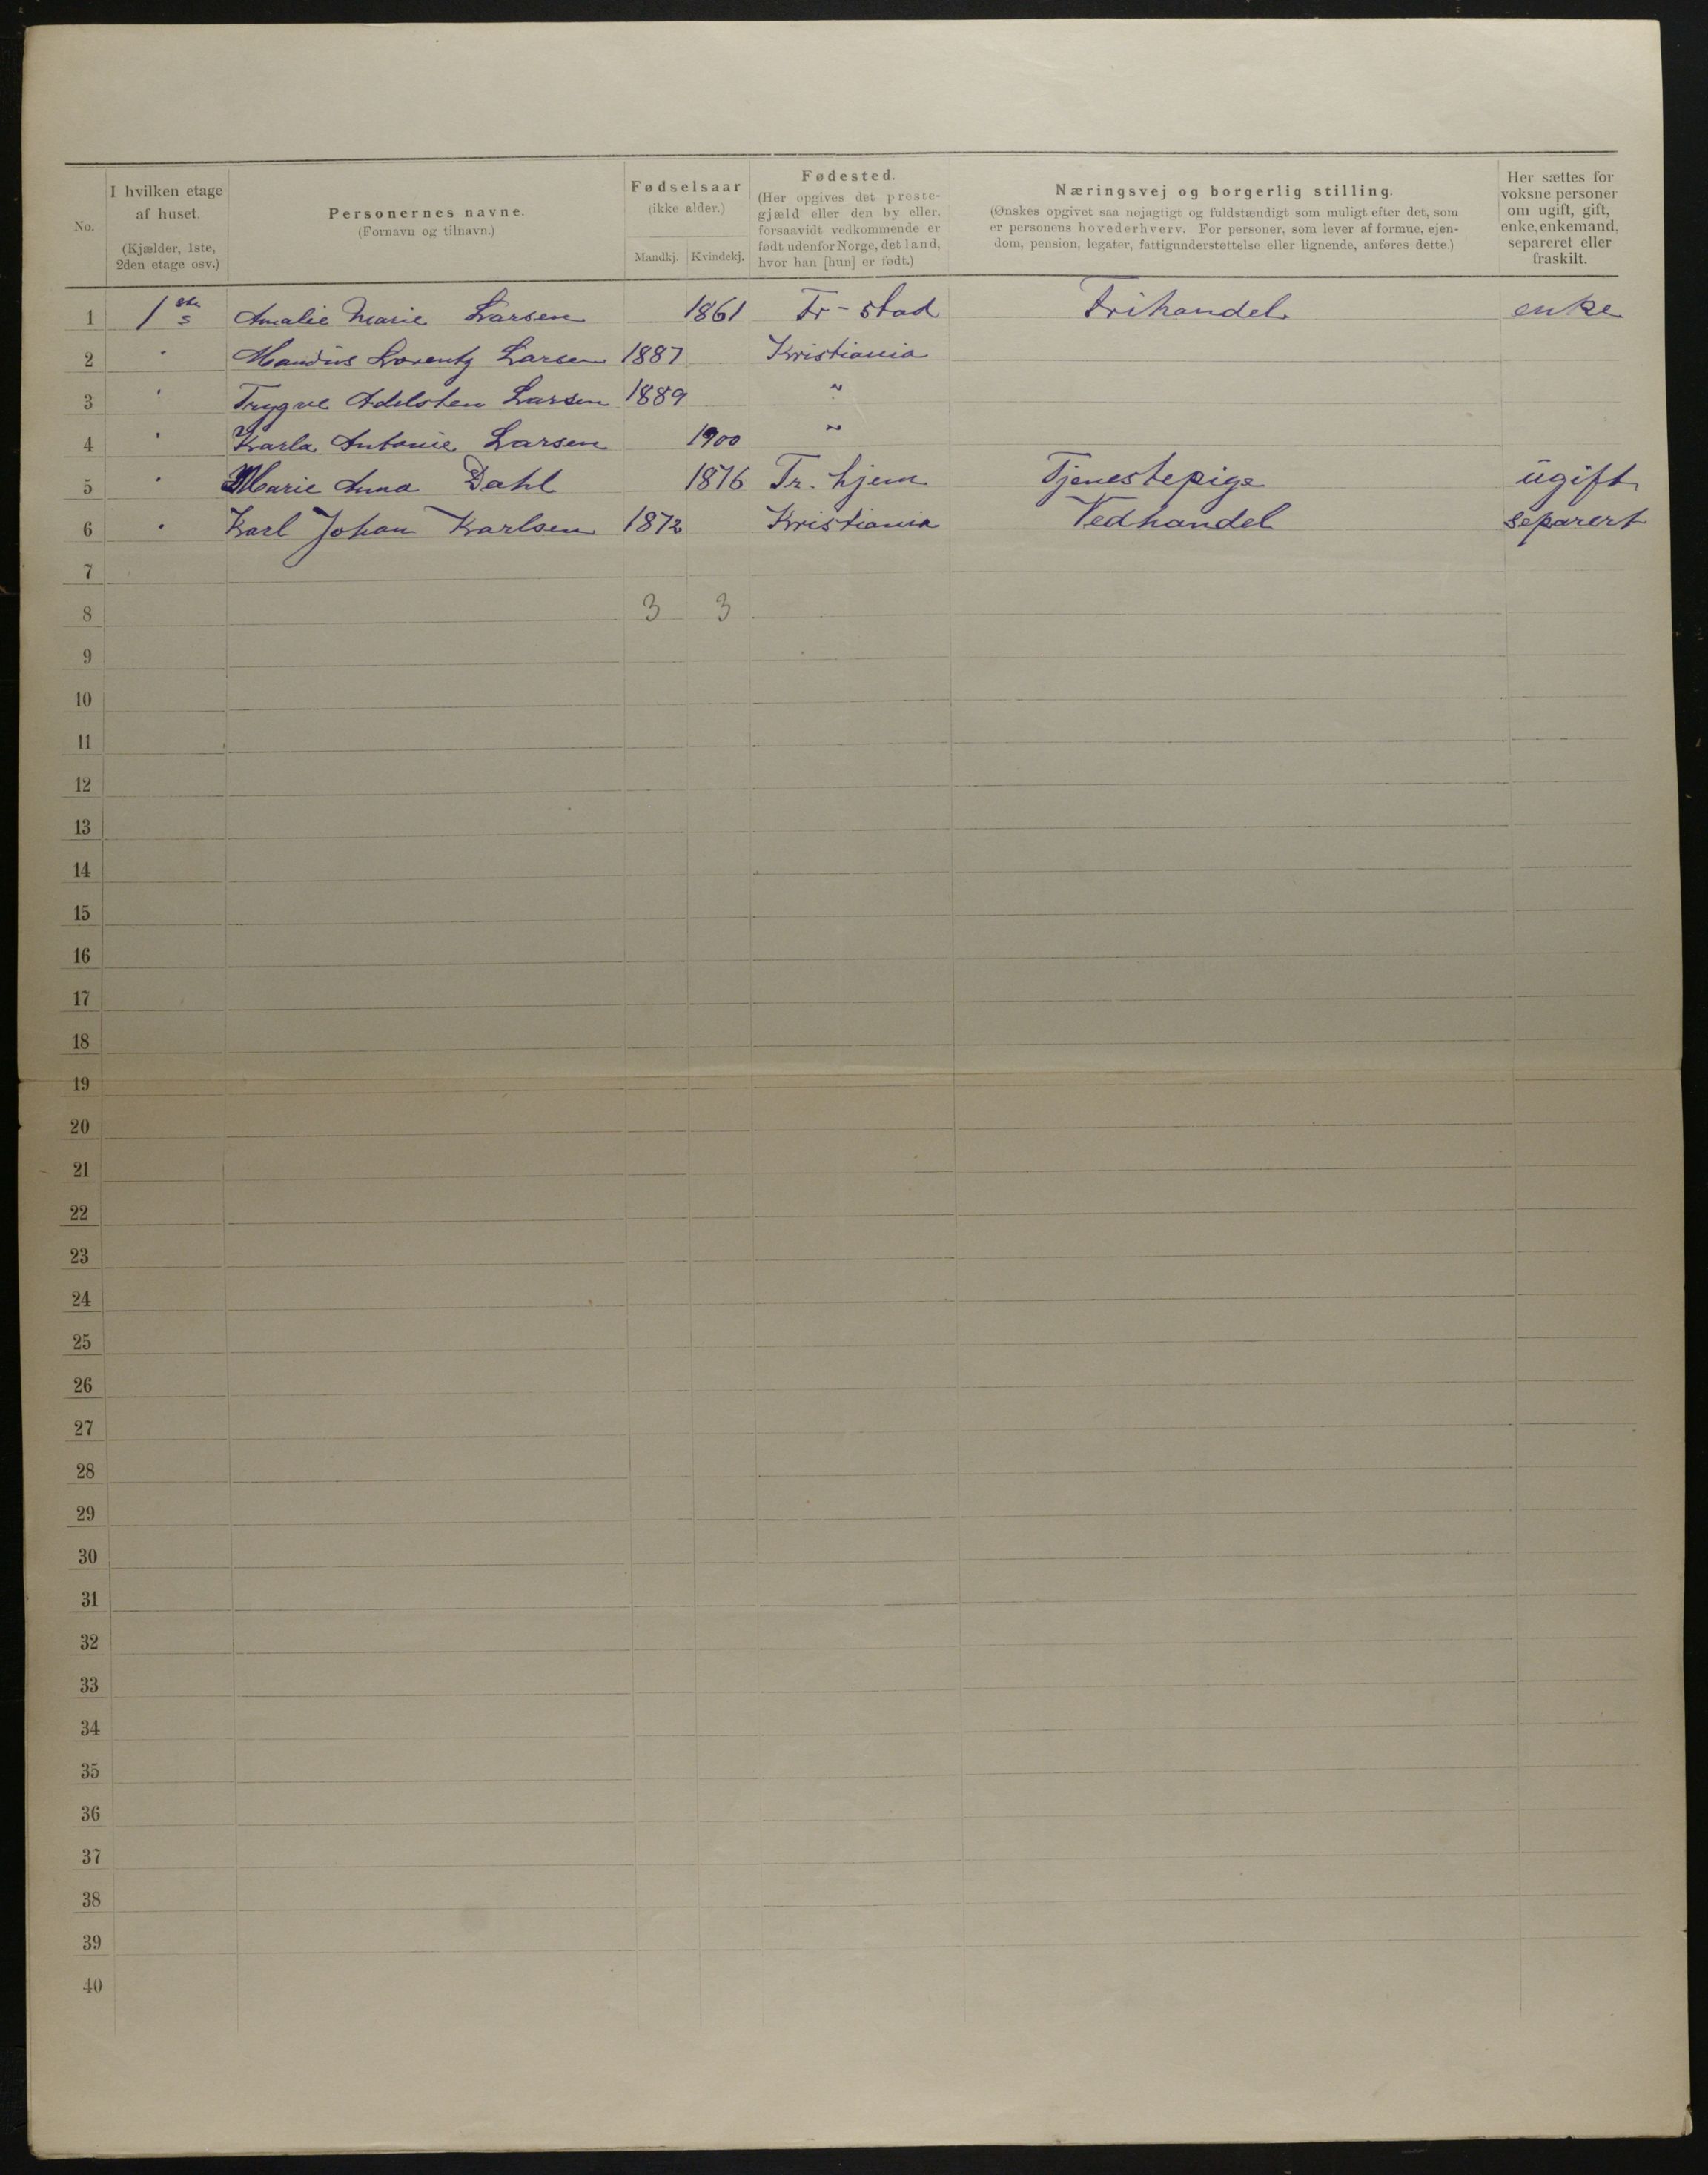 No.
I hvilken etage af huset. (Kjælder, 1ste, 2den etage osv.)
Personernes navne. (Fornavn og tilnavn.)
Fødselsaar (ikke alder.) Mandkj. Kvindekj.
Fødested. (Her opgives det præste-gjæld eller den by eller, forsaavidt vedkommende er født udenfor Norge, det land, hvor han [hun] er født.)
Næringsvej og borgerlig stilling. (Ønskes opgivet saa nøjagtigt og fuldstændigt som muligt efter det, som er personens hovederhverv. For personer, som lever af formue, ejen-dom, pension, legater, fattigunderstøttelse eller lignende, anføres dette.)
Her sættes for voksne personer om ugift, gift, enke, enkemand, separeret eller fraskilt.
1 1ste Amalie Marie Larsen 1861 Fr-stad Frihandel enke
2 " Mandius Lorentz Larsen 1887 Kristiania
3 " Trygve Adelsten Larsen 1889 "
4 " Karla Antonie Larsen 1900 "
5 " Marie Anna Dahl 1876 Tr. hjem Tjenestepige ugift
6 " Karl Johan Karlsen 1872 Kristiania Vedhandel separert
7
8 3 3
9
10
11
12
13
14
15
16
17
18
19
20
21
22
23
24
25
26
27
28
29
30
31
32
33
34
35
36
37
38
39
40